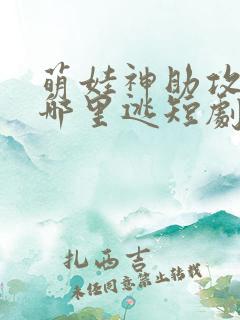 萌娃神助攻
哪里逃短劇
扎西吉
未经同意禁止转载